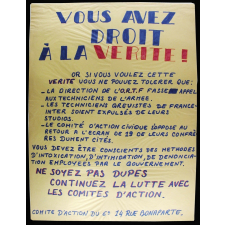 VOUS AVEZ
DROIT
À LA VERITE!
OR SI VOUS VOULEZ CETTE
VERITE VOUS NE POUVEZ TOLERER QUE:
_LA DIRECTION DE L'O.R.T.F FASSE APPEL
AUX TECHNICIENS DE L'ARMEE.
_LES TECHNICIENS GREVISTES DE FRANCE-
INTER SOIENT EXPULSÉS DE LEURS
STUDIOS.
_LE COMITÉ D'ACTION CIVIQUE S'OPPOSE AU
RETOUR A L'ECRAN DE 29 DE LEURS CONFRÈ
RES DUMENT CITÉS.
VOUS DEVEZ ÊTRE CONSCIENTS DES METHODES
D'INTOXICATION, D'INTIMIDATION, DE DENONCIA-
TION EMPLOYÉES PAR LE GOUVERNEMENT.
NE SOYEZ PAS DUPES
CONTINUEZ LA LUTTE AVEC
LES COMITÉS D'ACTION.
COMITE D'ACTION DU 14 RUE BONAPARTE.